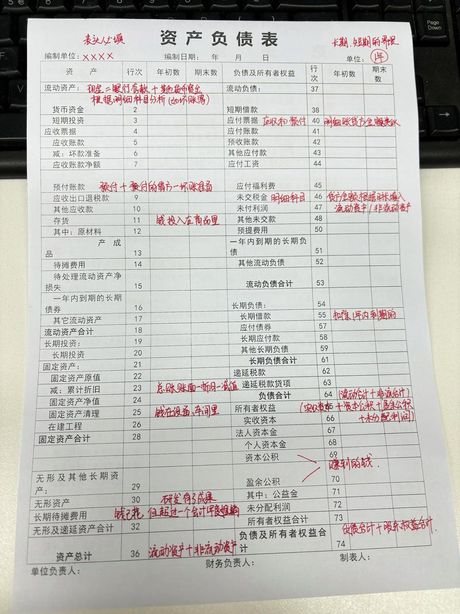 表头人必填
长期、短期的界限
资产负债表
编制单位：XXXX 编制日期： 年 月 日 单位：年
资产 行次 年初数 期末数 负债及所有者权益 行次 年初数 期末数
流动资产： 现金=银行存款+其他货币资金 流动负债： 37
根据明细科目分析
货币资金 1
短期投资 2 短期借款 38
应收票据 4 应付票据 应收和预付 40
应收账款 5 应付账款 41
减：坏款准备 6 预收账款 42
应收账款净额 7 其他应付款 43
应付工资 44
预付账款 预付+应付的借方一坏账准备 应付福利费 45
应收出口退税款 9 未交税金 明细科目 46
其他应收款 10 未付利润 47 流动资产/非流动资产
存货 11 钱投入在商品里 其他未交款 48
其中：原材料 12 预提费用 50
产成品 13 一年内到期的长期负债 51
待摊费用 14 其他流动负债 52
待处理流动资产净损失 15 流动负债合计 53
一年内到期的长期债券 16
其它流动资产 17 长期负债： 54
流动资产合计 18 长期借款 55 扣除1年内到期的
长期投资： 19 应付债券 57
长期投资 20 长期应付款 58
固定资产： 21 其他长期负债 59
固定资产原值 22 长期负债合计 61
减：累计折旧 23 总账账面一折旧一减值 递延税款 62
固定资产净值 24 递延税款贷项 63
固定资产清理 25 钱在设备、车间里 负债合计 64 （流动合计+非流合计）
在建工程 26 所有者权益 66 实收资本+资本公积+盈余公积
固定资产合计 28 实收资本 +未分配利润
法人资本金 67
个人资本金 68
无形及其他长期资产： 29 资本公积 69 赚到的钱
无形资产 30 研发有了成果 盈余公积 70
长期待摊费用 31 其中：公益金 71
无形及递延资产合计 32 未分配利润 72
所有者权益合计 73
资产总计 36 流动资产+非流动资产 负债及所有者权益合计 74 负债合计+所有权益合计
单位负责人： 财务负责人： 制表人：